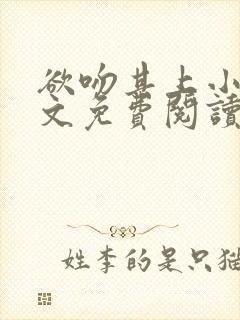 欲吻其上小
文免费閱讀
姓李的是只猫